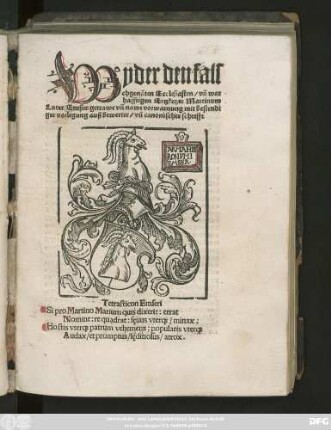 Wyder den falsch
genanten Ecclesiasten / vñ war
hafftigen Ertzketzer Martinum
Luter Emsers getrawe vñ nawe vorwarnung mit bestendi
ger vorlegung auß bewerter / vñ canonischer schrifft
ARMA HIE
RONIMI
EMSER
Tetrasticon Emseri
Si pro Martino Marium quis dixerit: errat
Nomine: re quadrat: sęuus vterq; / minax;
Hostis vterq; patriam vehemens: popularis vterq;
Audax / et promptus / seditiosus / atrox.
DFG